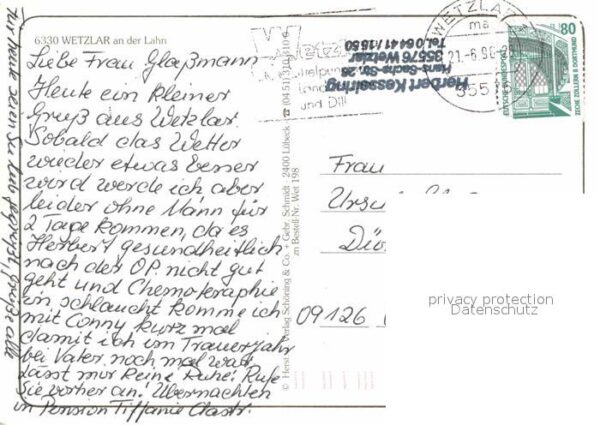 6330 WETZLAR an der Lahn
Liebe Frau Glaßmann
Heute ein kleiner
Gruß aus Wetzlar.
Sobald das Wetter
wieder etwas besser
wird werde ich aber
leider ohne Mann für
2 Tage kommen, da es
Herbert gesundheitlich
nach der OP. nicht gut
geht und Chemotheraphie
ihn schlaucht komme ich
mit Conny kurz mal
damit ich im Trauerjahr
bei Vater noch mal war,
lässt mir keine Ruhe! Rufe
Sie vorher an! Übernachten
in Pension Tiffanie
Für heute seien Sie lieb gegrüßt, Grüße alle
© Herst. + Verlag Schöning & Co. + Gebr. Schmidt · 2400 Lübeck · ☎ (04 51) 3 10 31 0
Bestell-Nr. Wet 198
Herbert Kesselring
Hans-Sachs-Str. 26
35576 Wetzlar
Tel. 0 64 41 / 15 50
und Dill
WETZLAR
21.-6.96
80
DEUTSCHE BUNDESPOST
ZECHE ZOLLERN II DORTMUND
Frau
09126
privacy protection
Datenschutz